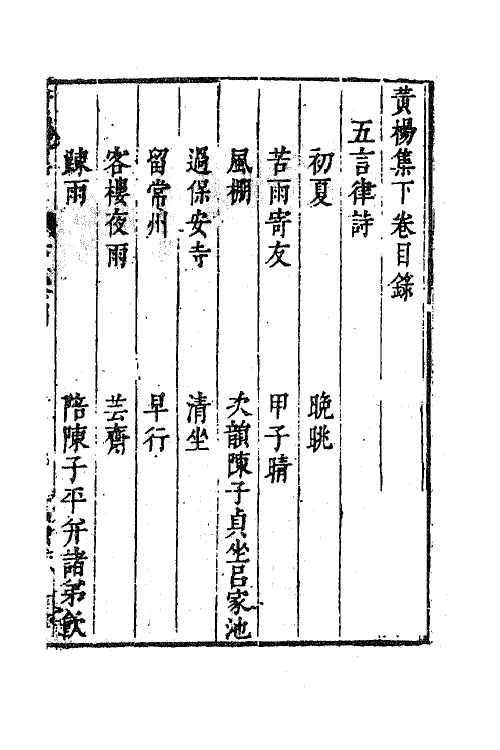 黃楊集下卷目錄
五言律詩
初夏　晚眺
苦雨寄友　甲子晴
風棚　次韻陳子貞坐呂家池
過保安寺　清坐
留常州　早行
客樓夜雨　芸齋
踈雨　陪陳子平幷諸弟飲